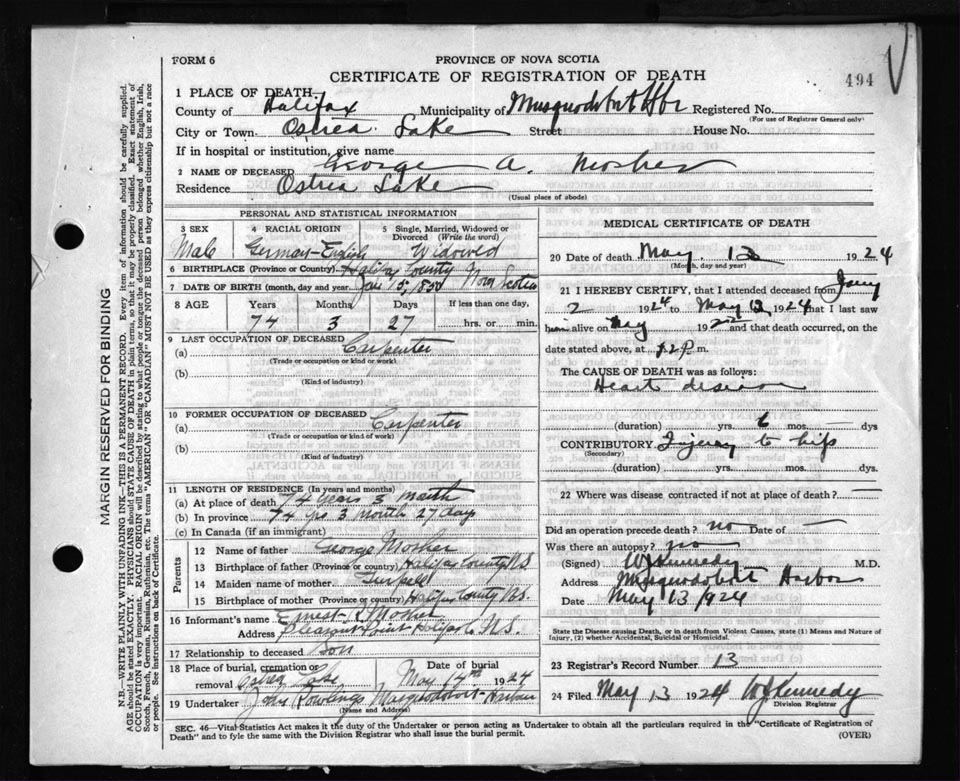 FORM 6
PROVINCE OF NOVA SCOTIA
CERTIFICATE OF REGISTRATION OF DEATH
494
1 PLACE OF DEATH—
County of Halifax Municipality of Musquodoboit Hbr Registered No.
(For use of Registrar General only)
City or Town Ostrea Lake Street House No.
If in hospital or institution, give name
2 NAME OF DECEASED George A. Mosher
Residence Ostrea Lake
(Usual place of abode)
PERSONAL AND STATISTICAL INFORMATION
3 SEX 4 RACIAL ORIGIN 5 Single, Married, Widowed or Divorced (Write the word)
Male German-English Widowed
6 BIRTHPLACE (Province or Country) Halifax County Nova Scotia
7 DATE OF BIRTH (month, day and year) Jan 15, 1850
8 AGE Years Months Days If less than one day,
74 3 27 hrs. or min.
9 LAST OCCUPATION OF DECEASED
(a) Carpenter
(Trade or occupation or kind or work)
(b)
(Kind of industry)
10 FORMER OCCUPATION OF DECEASED
(a) Carpenter
(Trade or occupation or kind of work)
(b)
(Kind of industry)
11 LENGTH OF RESIDENCE (In years and months)
(a) At place of death 74 years 3 month
(b) In province 74 yrs 3 month 27 days
(c) In Canada (if an immigrant)
Parents
12 Name of father George Mosher
13 Birthplace of father (Province or country) Halifax County N.S.
14 Maiden name of mother
15 Birthplace of mother (Province or country) Halifax County N.S.
16 Informant's name Ernest Mosher
Address Pleasant Point Halifax Co N.S.
17 Relationship to deceased Son
18 Place of burial, cremation or removal Ostrea Lake Date of burial May 14th 1924
19 Undertaker John Rowlings Musquodoboit Harbour
(Name and Address)
MEDICAL CERTIFICATE OF DEATH
20 Date of death May 12 1924
(Month, day and year)
21 I HEREBY CERTIFY, that I attended deceased from Jany
2 1924 to May 12, 1924 that I last saw
him alive on May 19 and that death occurred, on
date stated above, at 12 P. m.
The CAUSE OF DEATH was as follows:
Heart disease
(duration) yrs. 6 mos. dys
CONTRIBUTORY Injury to hip
(Secondary)
(duration) yrs. mos. dys.
22 Where was disease contracted if not at place of death?
Did an operation precede death? no Date of
Was there an autopsy? no
(Signed) W J Kennedy M.D.
Address Musquodoboit Harbor
Date May 13 1924
State the Disease causing Death, or in death from Violent Causes, state (1) Means and Nature
of Injury, (2) whether Accidental, Suicidal or Homicidal.
23 Registrar's Record Number 13
24 Filed May 13 1924 W J Kennedy
Division Registrar
SEC. 46—Vital Statistics Act makes it the duty of the Undertaker or person acting as Undertaker to obtain all the particulars required in the "Certificate of Registration of
Death" and to fyle the same with the Division Registrar who shall issue the burial permit.
(OVER)
MARGIN RESERVED FOR BINDING
N.B.—WRITE PLAINLY WITH UNFADING INK—THIS IS A PERMANENT RECORD. Every item of information should be carefully supplied.
AGE should be stated EXACTLY. PHYSICIANS should STATE CAUSE OF DEATH in plain terms, so that it may be properly classified. Exact statement of
OCCUPATION is very important. RACIAL ORIGIN will be described by stating to what people or tongue the deceased person belonged whether English, Irish,
Scotch, French, German, Russian, Ruthenian, etc. The terms "AMERICAN" OR "CANADIAN" MUST NOT BE USED as they express citizenship but not a race
or people. See instructions on back of Certificate.